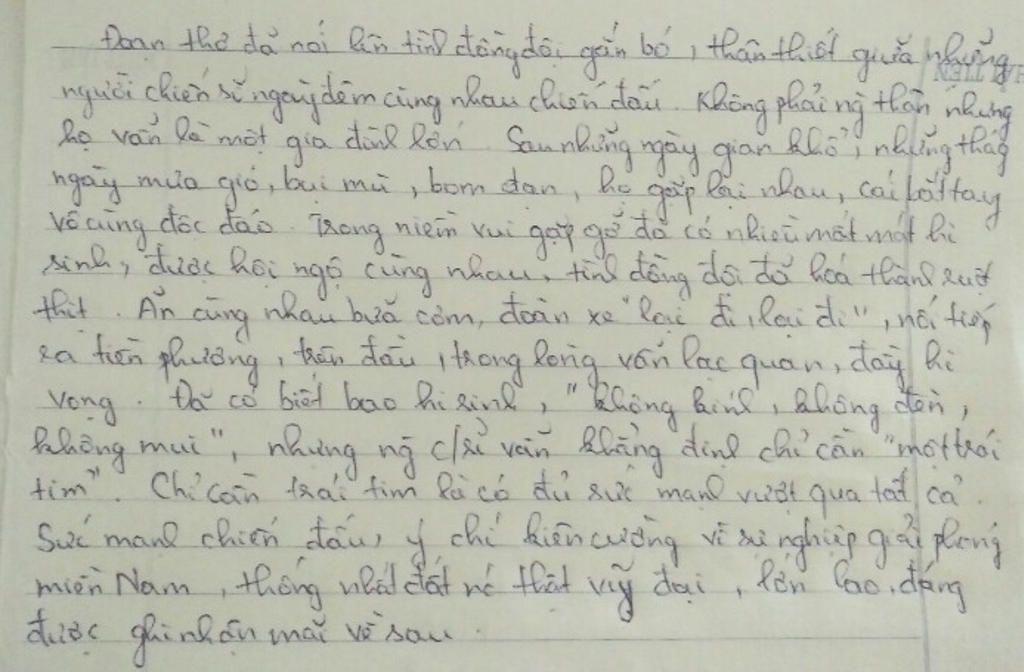 Đoạn thơ đã nói lên tình đồng đội gắn bó, thân thiết giữa những
người chiến sĩ ngày đêm cùng nhau chiến đấu. Không phải ng thân nhưng
họ vẫn là một gia đình lớn. Sau những ngày gian khổ, những tháng
ngày mưa gió, bụi mù, bom đạn, họ gặp lại nhau, cái bắt tay
vô cùng độc đáo. Trong niềm vui gặp gỡ đó có nhiều mất mát hi
sinh, được hội ngộ cùng nhau, tình đồng đội đã hoá thành ruột
thịt. Ăn cùng nhau bữa cơm, đoàn xe "lại đi, lại đi", nối tiếp
ra tiền phương, trận đấu, trong lòng vẫn lạc quan, đầy hi
vọng. Đã có biết bao hi sinh, "không kính, không đèn,
không mui", nhưng ng c/sĩ vẫn khẳng định chỉ cần "một trái
tim". Chỉ cần trái tim là có đủ sức mạnh vượt qua tất cả.
Sức mạnh chiến đấu, ý chí kiên cường vì sự nghiệp giải phóng
miền Nam, thống nhất đất nc thật vĩ đại, lớn lao, đáng
được ghi nhận mãi về sau.